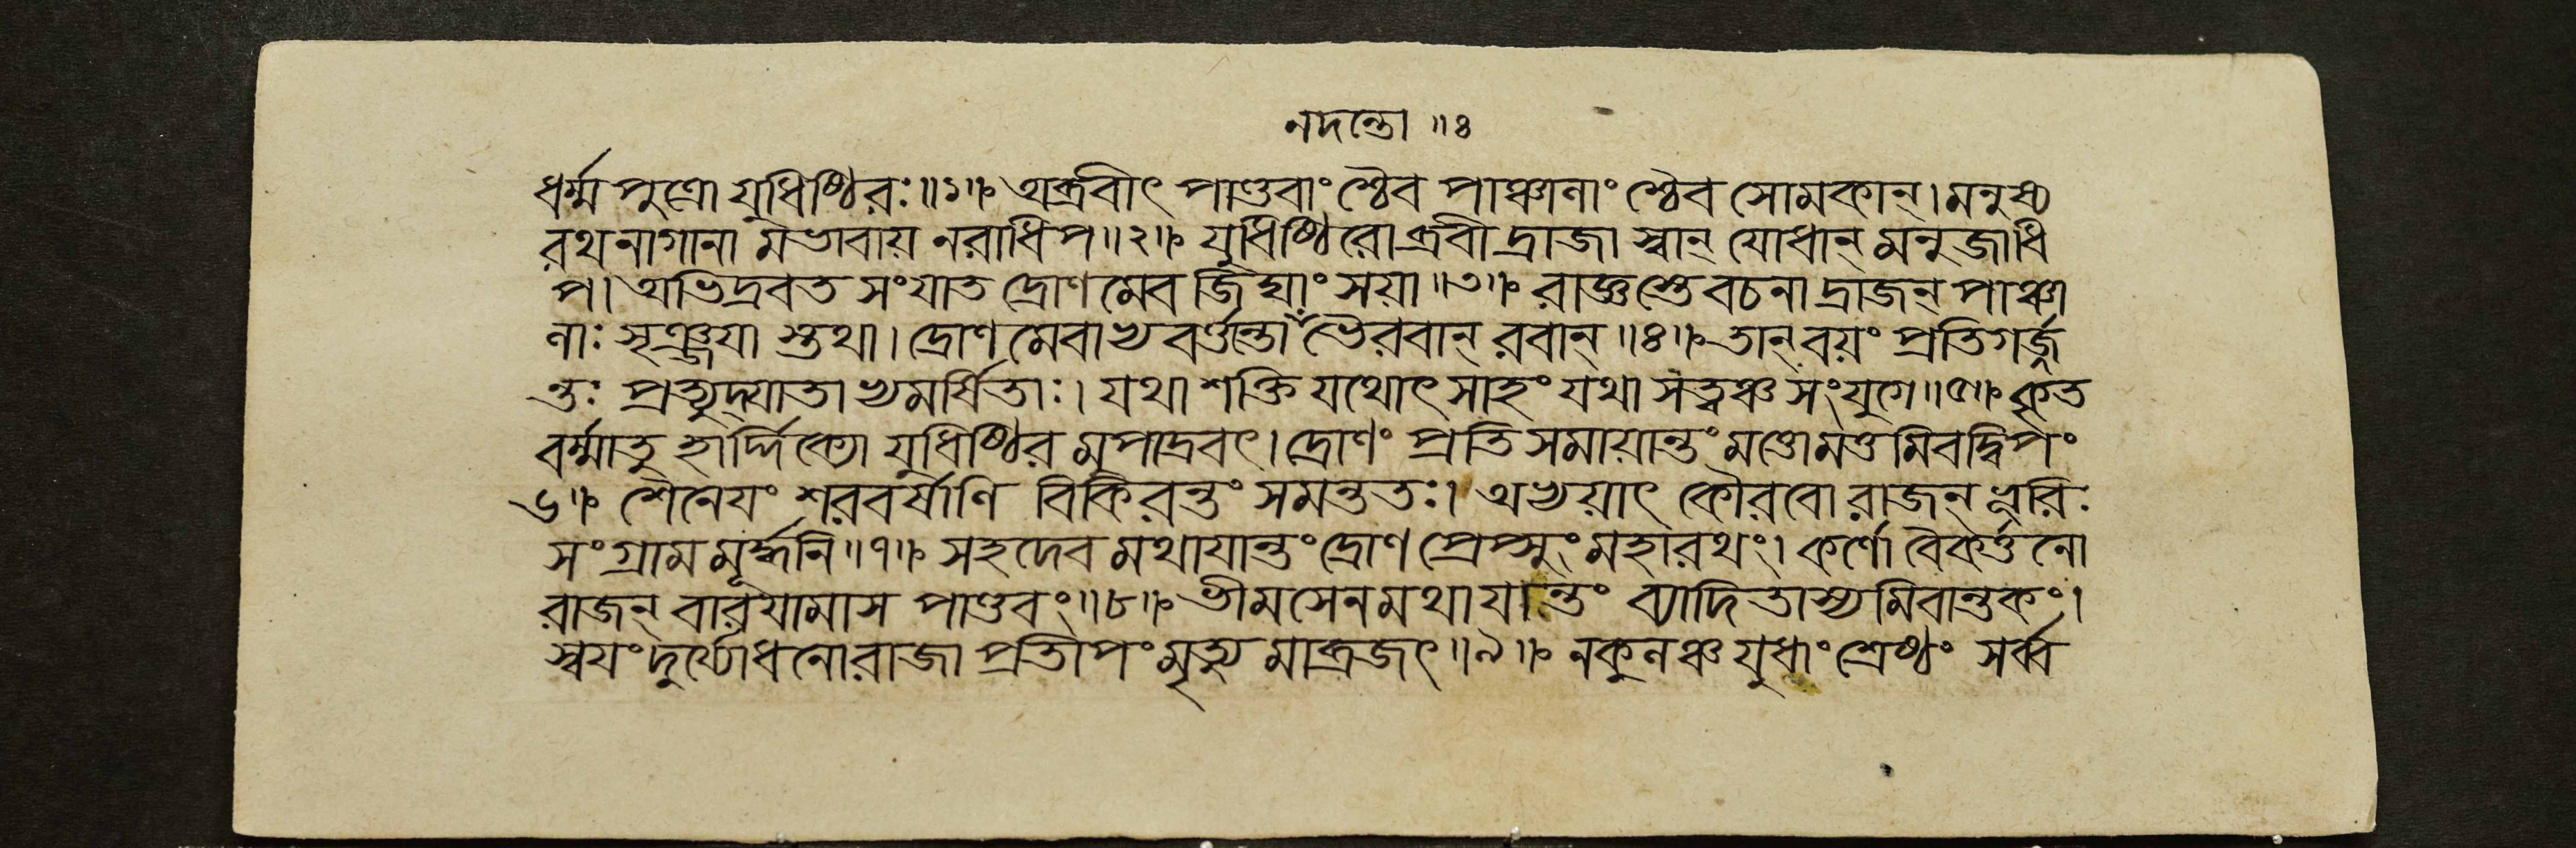 নদন্তো ॥ ৪
ধর্ম্মপুত্রো যুধিষ্ঠিরঃ ॥ ১ ॥ অব্রবীৎ পাণ্ডবাংশ্চৈব পাঞ্চালাংশ্চৈব সোমকান্ । মনুষ্য
রথনাগানামভাবায় নরাধিপ ॥ ২ ॥ যুধিষ্ঠিরোব্রবীদ্রাজা স্বান্ যোধান্ মনুজাধি
প । অভিদ্রবত সংযাত দ্রোণমেব জিঘাংসয়া ॥ ৩ ॥ রাজ্ঞস্তে বচনাদ্রাজন্ পাঞ্চা
লাঃ সৃঞ্জয়াস্তথা । দ্রোণমেবাভ্যবর্ত্তন্তো ভৈরবান্ রবান্ ॥ ৪ ॥ তান্ বয়ং প্রতিগর্জ্জ
ন্তঃ প্রত্যুদ্যাতাস্ত্বমর্ষিতাঃ । যথাশক্তি যথোৎসাহং যথাসত্ত্বঞ্চ সংযুগে ॥ ৫ ॥ কৃত
বর্ম্মা তু হার্দ্দিক্যো যুধিষ্ঠিরমুপাদ্রবৎ । দ্রোণং প্রতি সমায়ান্তং মত্তোমত্তমিবদ্বিপং
৬ ॥ শৈনেয়ং শরবর্ষাণি বিকিরন্তং সমন্ততঃ । অভ্যয়াৎ কৌরবো রাজন্ ভূরিঃ
সংগ্রামমূর্দ্ধনি ॥ ৭ ॥ সহদেবমথায়ান্তং দ্রোণপ্রেপ্সুং মহারথং । কর্ণো বৈকর্ত্তনো
রাজন্ বারয়ামাস পাণ্ডবং ॥ ৮ ॥ ভীমসেনমথায়ান্তং ব্যাদিতাস্যমিবান্তকং ।
স্বয়ং দুর্য্যোধনোরাজা প্রতীপং মৃত্যুমাব্রজৎ ॥ ৯ ॥ নকুলঞ্চ যুধাংশ্রেষ্ঠং সর্ব্ব